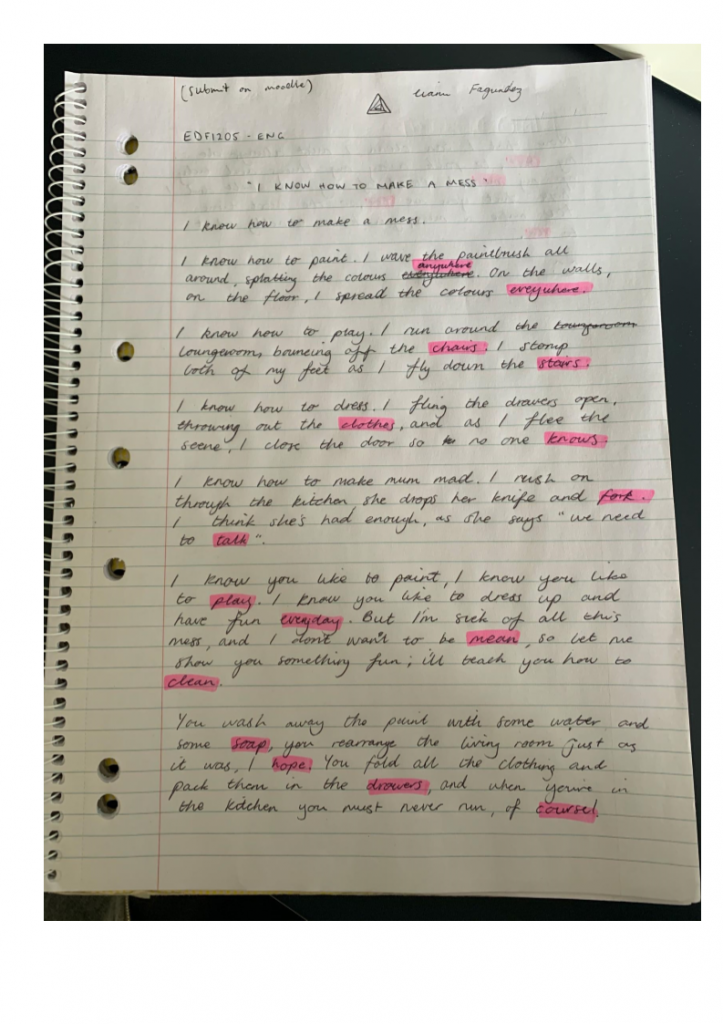 (submit on moodle) Fagundez
EDF1205 - ENG
"I KNOW HOW TO MAKE A MESS"
I know how to make a mess.
I know how to paint. I wave the paintbrush all
anywhere
around, splatting the colours everywhere. On the walls,
on the floor, I spread the colours eveywhere.
I know how to play. I run around the loungeroom
loungeroom, bouncing off the chairs. I stomp
both of my feet as I fly down the stairs.
I know how to dress. I fling the drawers open,
throwing out the clothes, and as I flee the
scene, I close the door so no one knows.
I know how to make mum mad. I rush on
through the kitchen, she drops her knife and fork.
I think she's had enough, as she says "we need
to talk".
I know you like to paint, I know you like
to play. I know you like to dress up and
have fun everyday. But I'm sick of all this
mess, and I don't want to be mean, so let me
show you something fun; i'll teach you how to
clean.
You wash away the paint with some water and
some soap, you rearrange the living room just as
it was, I hope. You fold all the clothing and
pack them in the drawers, and when you're in
the kitchen you must never run, of course!